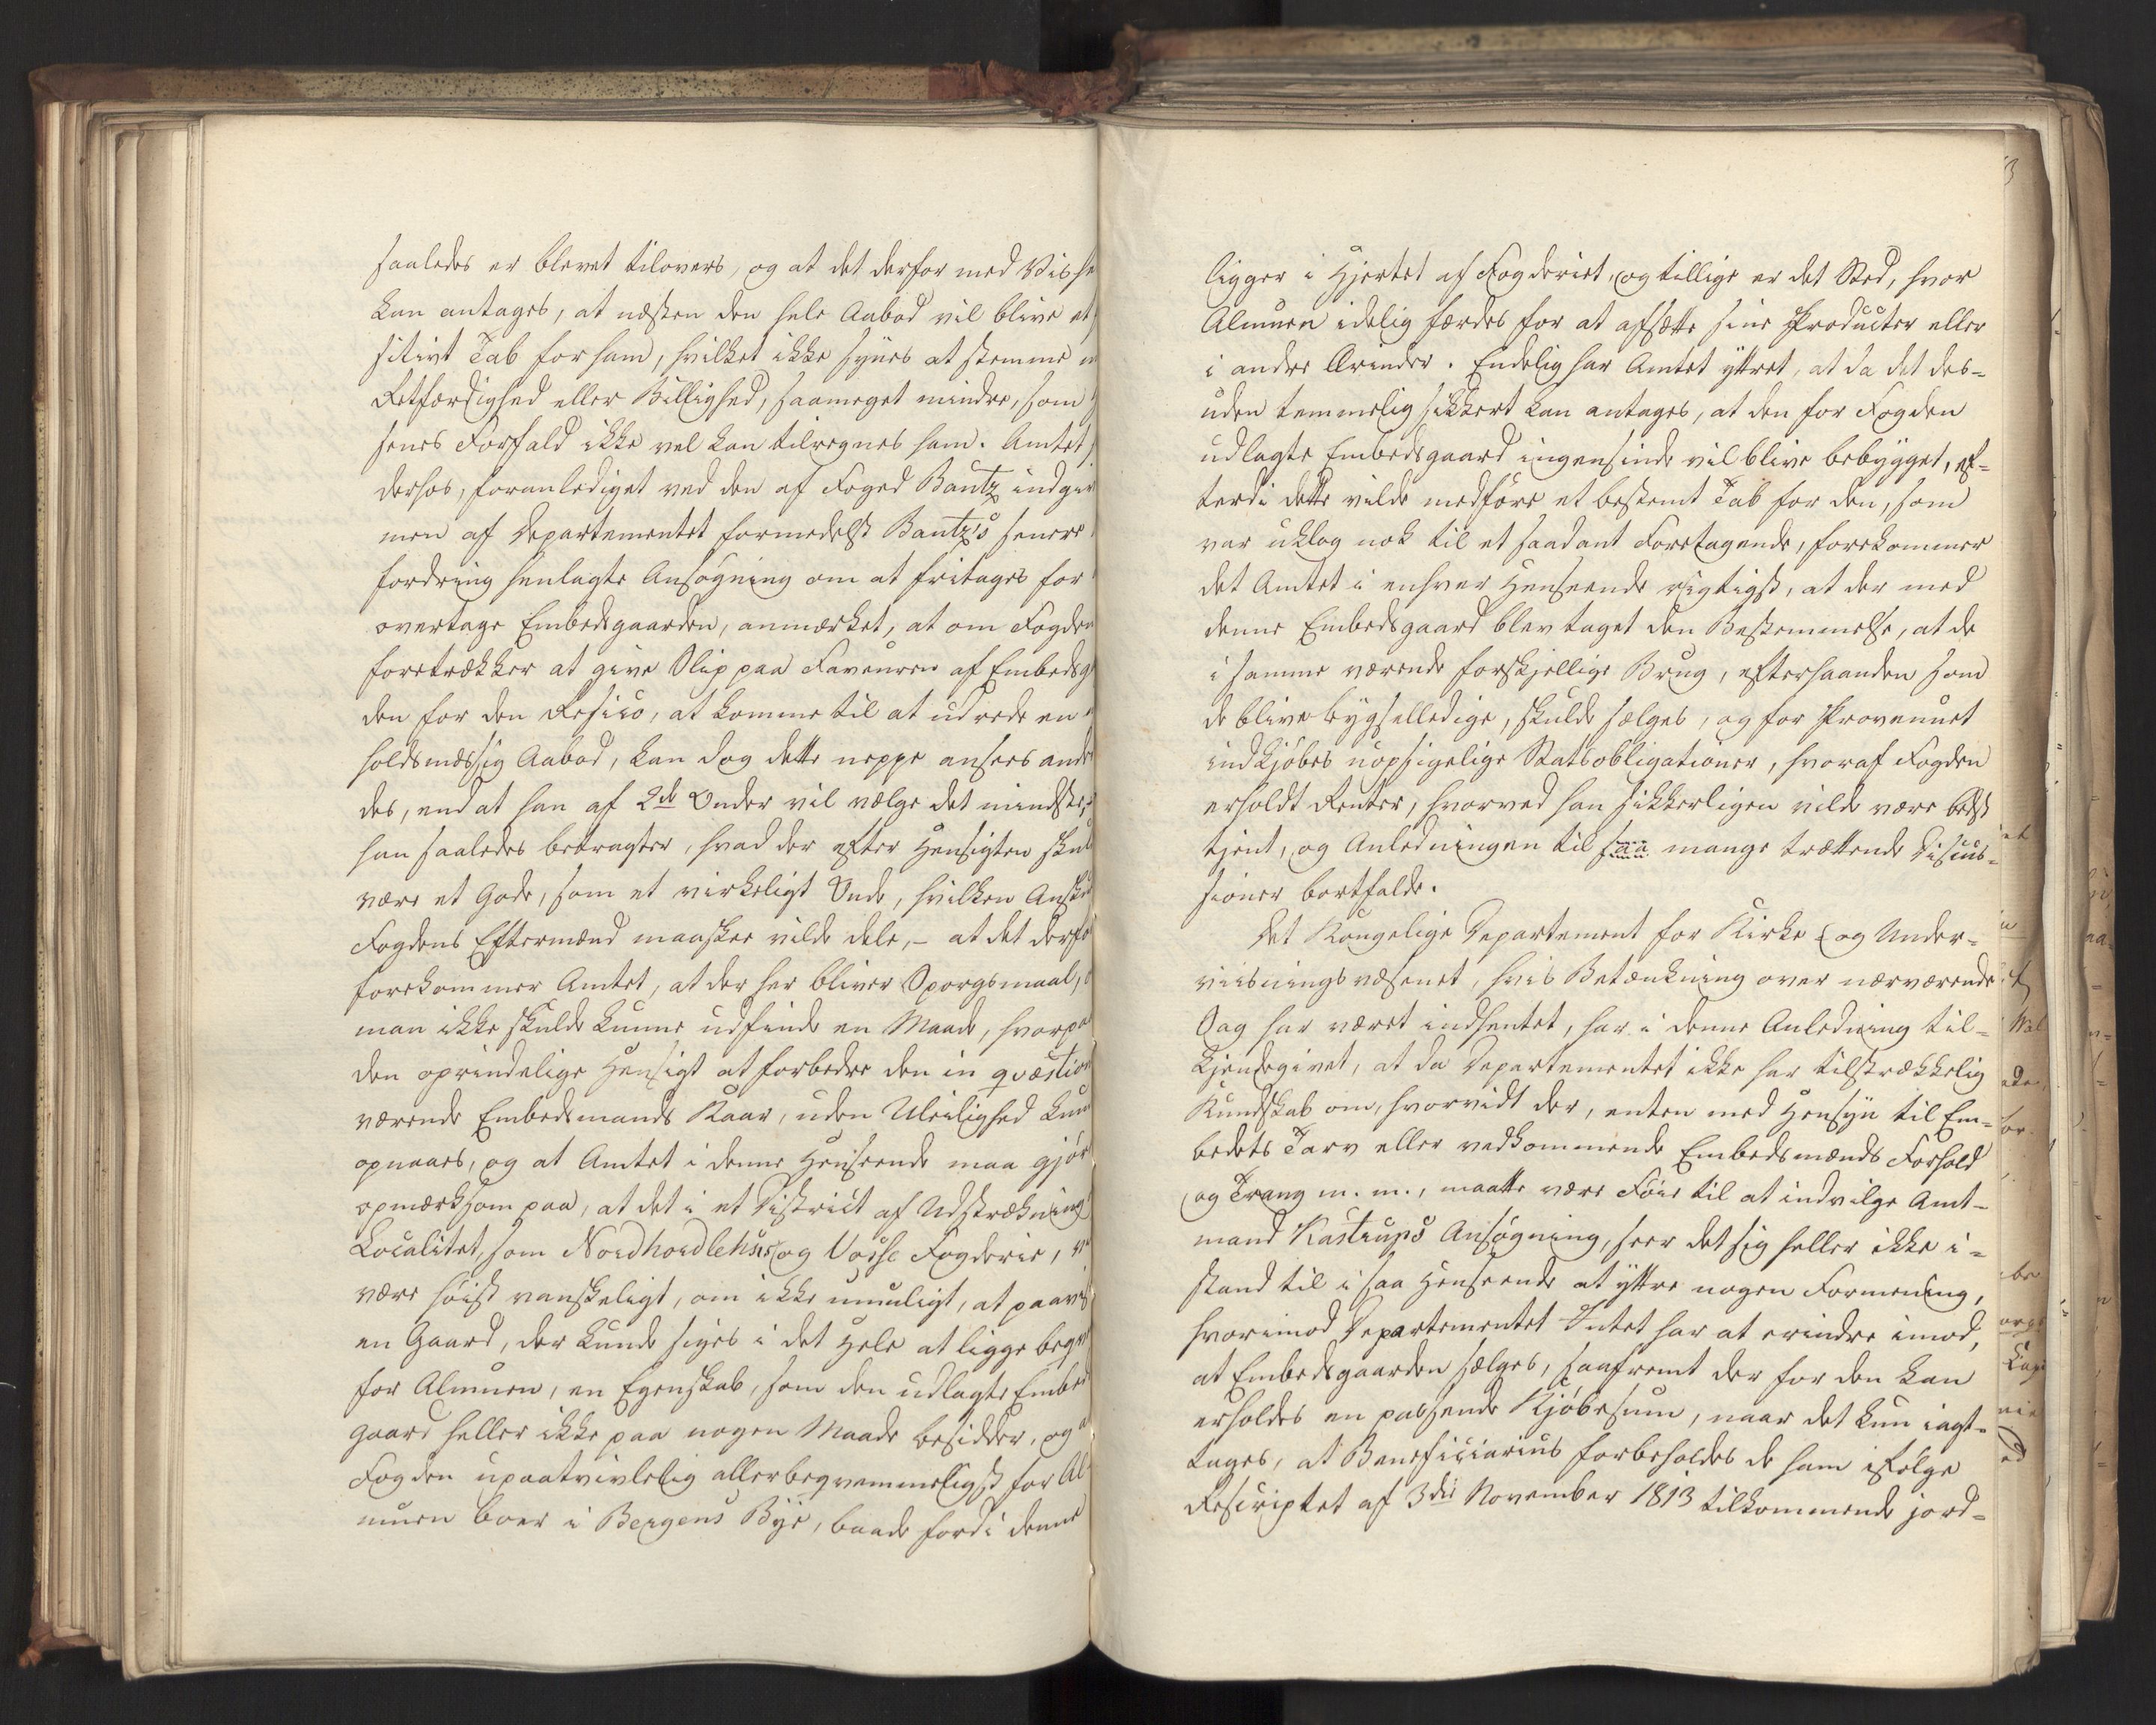 saaledes er blevet tilovers, og at det derfor med Vishe
kan antages, at næsten den hele Aabod vil blive et
sitivt Tab for ham, hvilket ikke synes at stemme m
Retfærdighed eller Billighed, saameget mindre, som
senes Forfald ikke vel kan tilregnes ham. Amtet
derhos, foranlediget ved den af Foged Bautz indgiv
men af Departementet formedelst Bautz's senere
fordring henlagte Ansøgning om at fritages for
overtage Embedsgaarden, anmærket, at om Fogden
foretrækker at give Slip paa Faveuren af Embedsg
den for den Resico, at komme til at udrede en
holdsmæssig Aabod, kan dog dette neppe ansees ander
des, end at han af 2de Onder vil vælge det mindste,
han saaledes betragter, hvad der efter Hensigten skul
være et Gode, som et virkeligt Onde, hvilken Ansku
Fogdens Eftermænd maaskee vilde dele, – at det derfo
forekommer Amtet, at der her bliver Spørgsmaal,
man ikke skulde kunne udfinde en Maade, hvorpaa
den oprindelige Hensigt at forbedre den in qvæstion
værende Embedsmands Kaar, uden Uleilighed kun
opnaaes, og at Amtet i denne Henseende maa gjør
opmærksom paa, at det i et District af Udstrækning
Localitet, som Nordhordlehns og Vosse Fogderie, vi
være høist vanskeligt, om ikke umuligt, at paavis
en Gaard, der kunde siges i det Hele at ligge beqv
for Almuen, en Egenskab, som den udlagte Embed
gaard heller ikke paa nogen Maade besidder, og a
Fogden upaatvivlelig allerbeqvemmeligst for Al
muen boer i Bergens Bye, baade fordi denne
ligger i Hjertet af Fogderiet, og tillige er det Sted, hvor
Almuen idelig færdes for at afsætte sine Producter eller
i andre Ærinder. Endelig har Amtet yttret, at da det des-
uden temmelig sikkert kan antages, at den for Fogden
udlagte Embedsgaard ingensinde vil blive bebygget, ef-
terdi dette vilde medføre et bestemt Tab for den, som
var uklog nok til et saadant Foretagende, forekommer
det Amtet i enhver Henseende rigtigst, at der med
denne Embedsgaard blev taget den Bestemmelse, at de
i samme værende forskjellige Brug, efterhaanden som
de blive bygselledige, skulde sælges, og for Provenuet
indkjøbes uopsigelige Statsobligationer, hvoraf Fogden
erholdt Renter, hvorved han sikkerligen vilde være bedst
tjent, og Anledningen til saa mange trættende Discus-
sioner bortfalde.
Det Kongelige Departement for Kirke og Under-
viisningsvæsenet, hvis Betænkning over nærværende
Sag har været indhentet, har i denne Anledning til-
kjendegivet, at da Departementet ikke har tilstrækkelig
Kundskab om, hvorvidt der, enten med Hensyn til Em-
bedets Tarv eller vedkommende Embedsmænds Forhold
og Trang m. m., maatte være Føie til at indvilge Amt-
mand Kastrups Ansøgning, seer det sig heller ikke i-
stand til i saa Henseende at yttre nogen Formening,
hvorimod Departementet Intet har at erindre imod,
at Embedsgaarden sælges, saafremt der for den kan
erholdes en passende Kjøbesum, naar det kun iagt-
tages, at Beneficiarius forbeholdes de ham ifølge
Rescriptet af 3die November 1813 tilkommende jord-